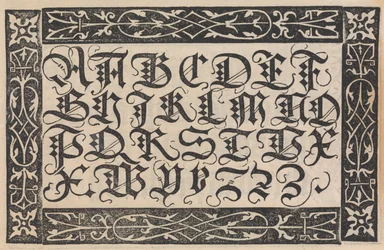 A A B C D E F
G H I K L M N O
P Q R S T V X
X Y Y Z Z Z